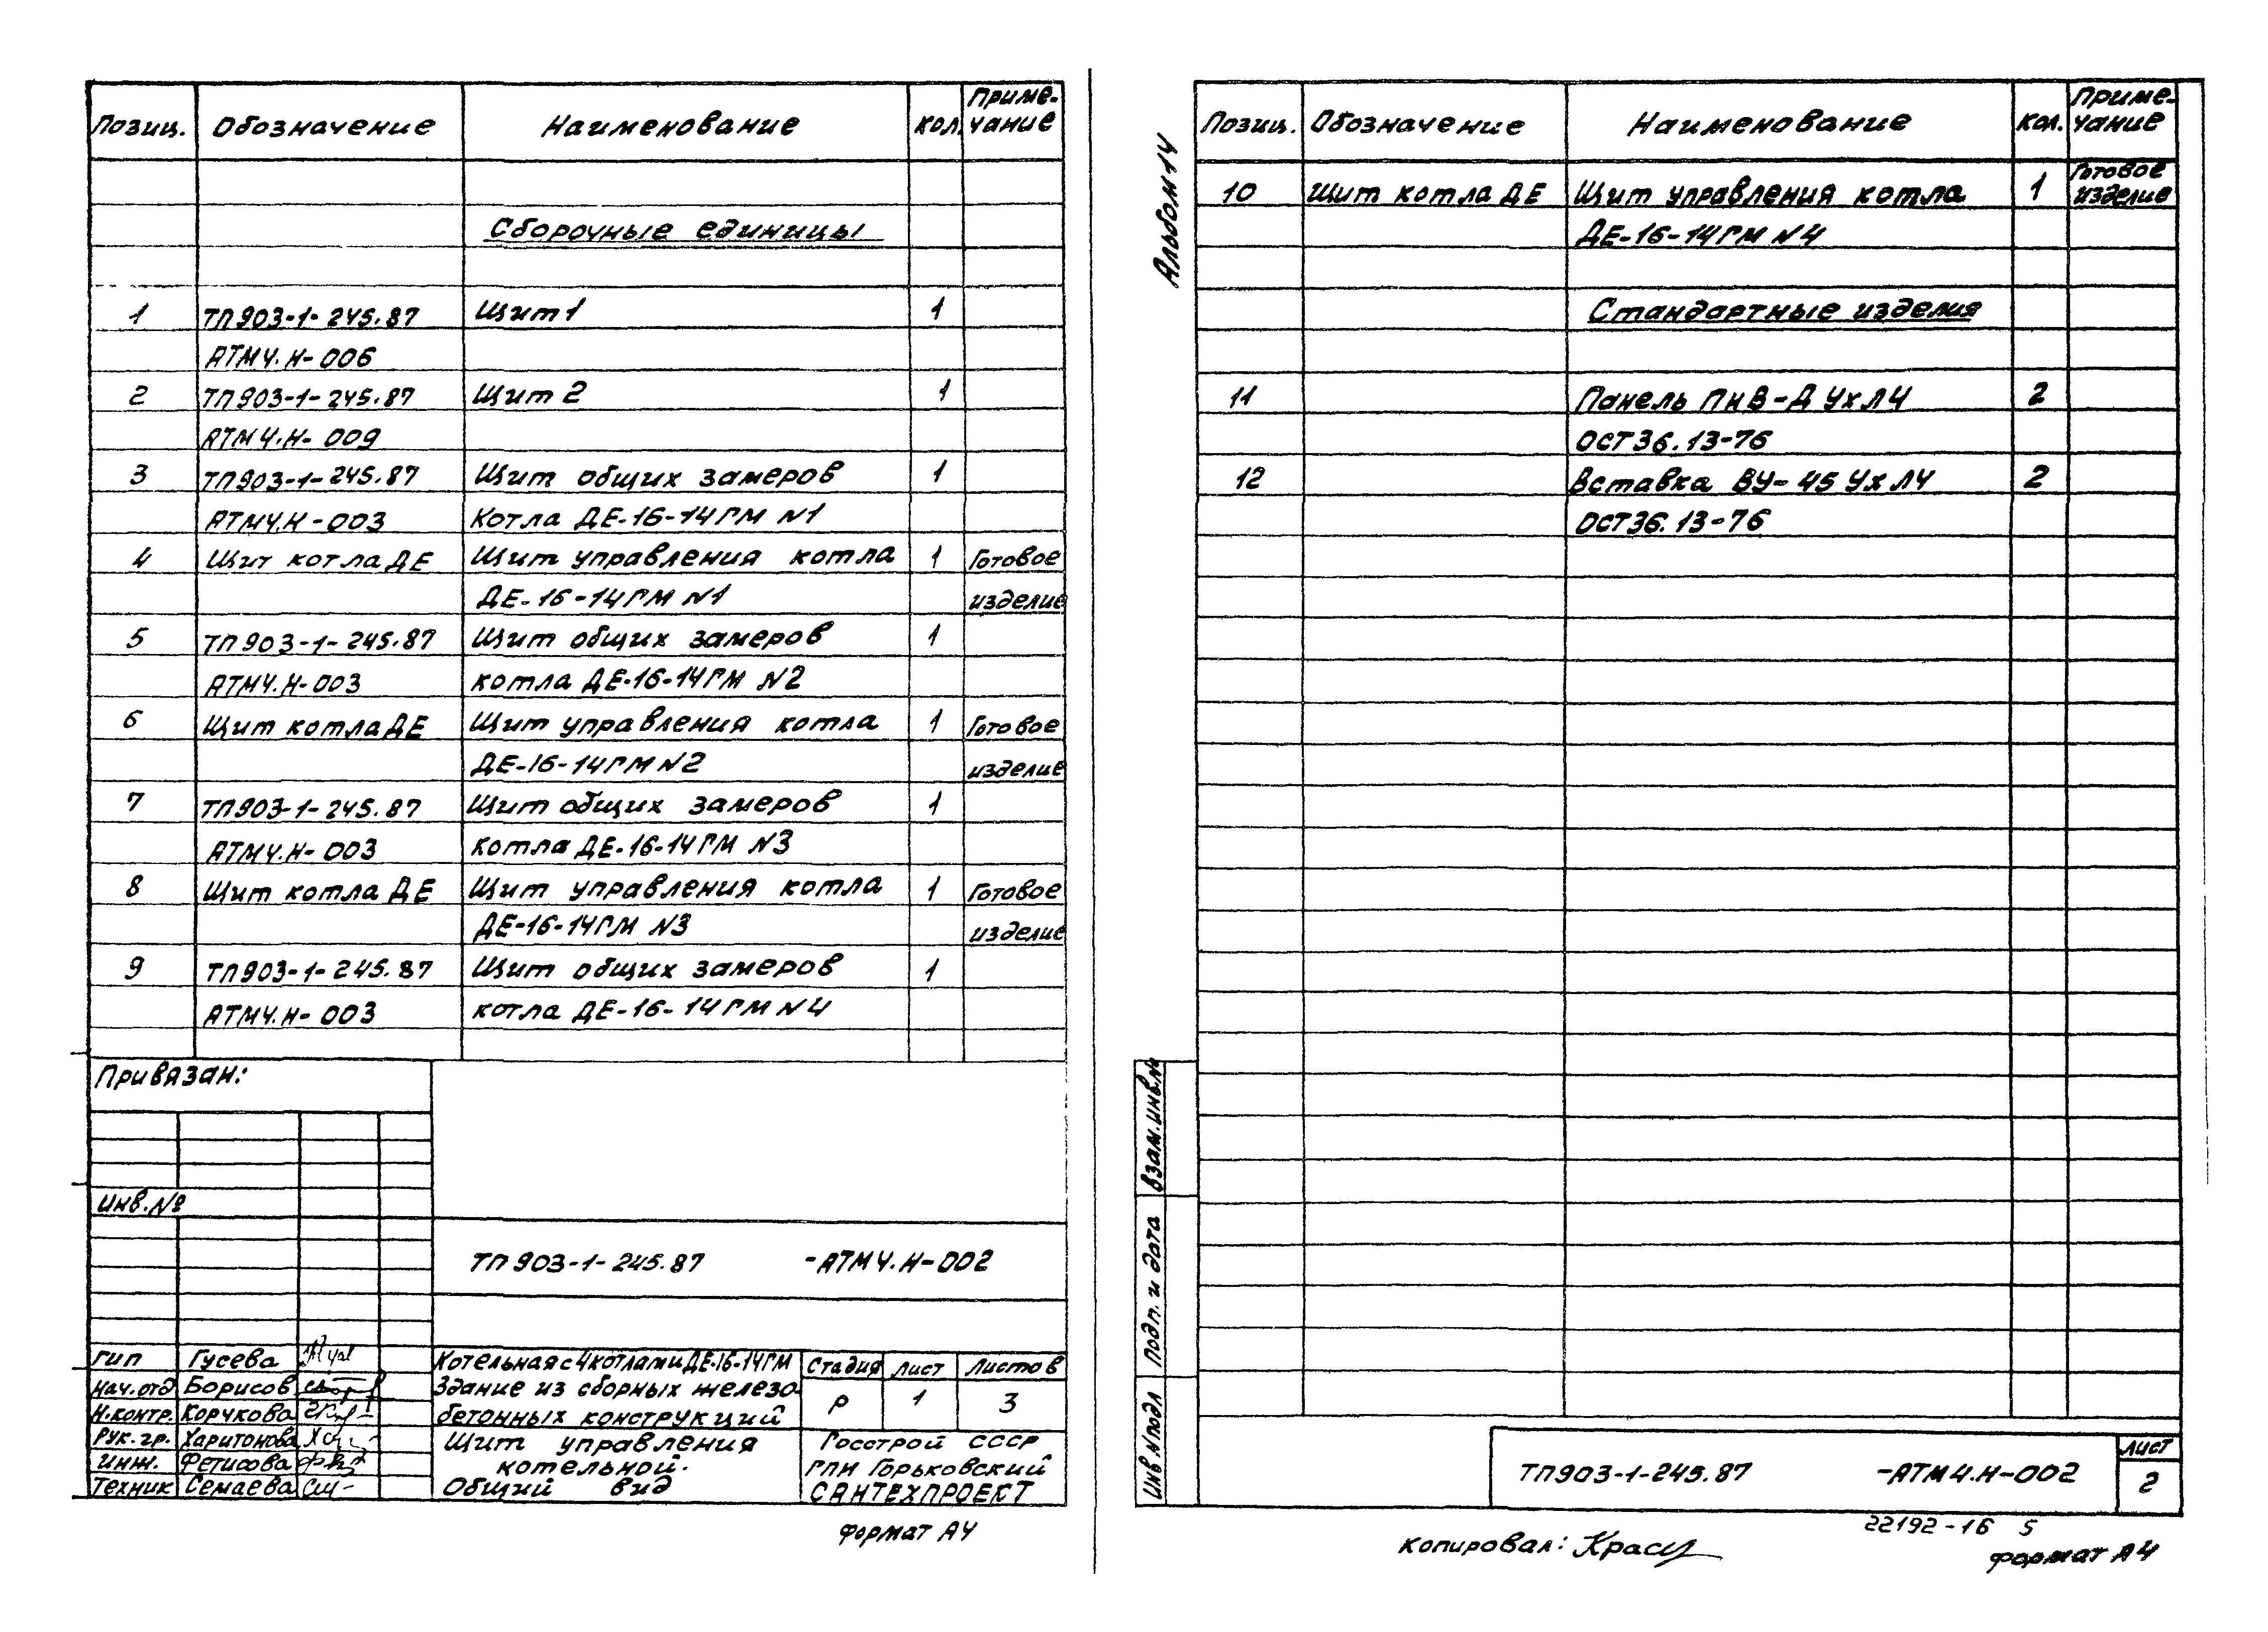 Позиц. Обозначение Наименование Кол. Приме-
чание
Сборочные единицы
1 ТП903-1-245.87 Щит 1 1
АТМ4.Н-006
2 ТП903-1-245.87 Щит 2 1
АТМ4.Н-009
3 ТП903-1-245.87 Щит общих замеров 1
АТМ4.Н-003 Котла ДЕ-16-14ГМ N1
4 Щит котла ДЕ Щит управления котла 1 Готовое
ДЕ-16-14ГМ N1 изделие
5 ТП903-1-245.87 Щит общих замеров 1
АТМ4.Н-003 котла ДЕ-16-14ГМ N2
6 Щит котла ДЕ Щит управления котла 1 Готовое
ДЕ-16-14ГМ N2 изделие
7 ТП903-1-245.87 Щит общих замеров 1
АТМ4.Н-003 котла ДЕ-16-14ГМ N3
8 Щит котла ДЕ Щит управления котла 1 Готовое
ДЕ-16-14ГМ N3 изделие
9 ТП903-1-245.87 Щит общих замеров 1
АТМ4.Н-003 котла ДЕ-16-14ГМ N4
Привязан:
Инв.№
ТП903-1-245.87 -АТМ4.Н-002
ГИП Гусева
Нач.отд Борисов
Н.контр. Корчкова
Рук.гр. Харитонова
Инж. Фетисова
Техник Семаева
Котельная с 4 котлами ДЕ-16-14ГМ
Здание из сборных железо-
бетонных конструкций
Стадия Лист Листов
Р 1 3
Щит управления
котельной.
Общий вид
Госстрой СССР
ГПИ Горьковский
САНТЕХПРОЕКТ
Формат А4
Альбом 14
Позиц. Обозначение Наименование Кол. Приме-
чание
10 Щит котла ДЕ Щит управления котла 1 Готовое
изделие
ДЕ-16-14ГМ N4
Стандартные изделия
11 Панель ПнВ-Д УхЛ4 2
ОСТ36.13-76
12 Вставка ВУ-45 УхЛ4 2
ОСТ36.13-76
Взам.инв.№
Подп. и дата
Инв.N подл
ТП903-1-245.87 -АТМ4.Н-002
Лист
2
22192-16 5
Копировал:
Формат А4